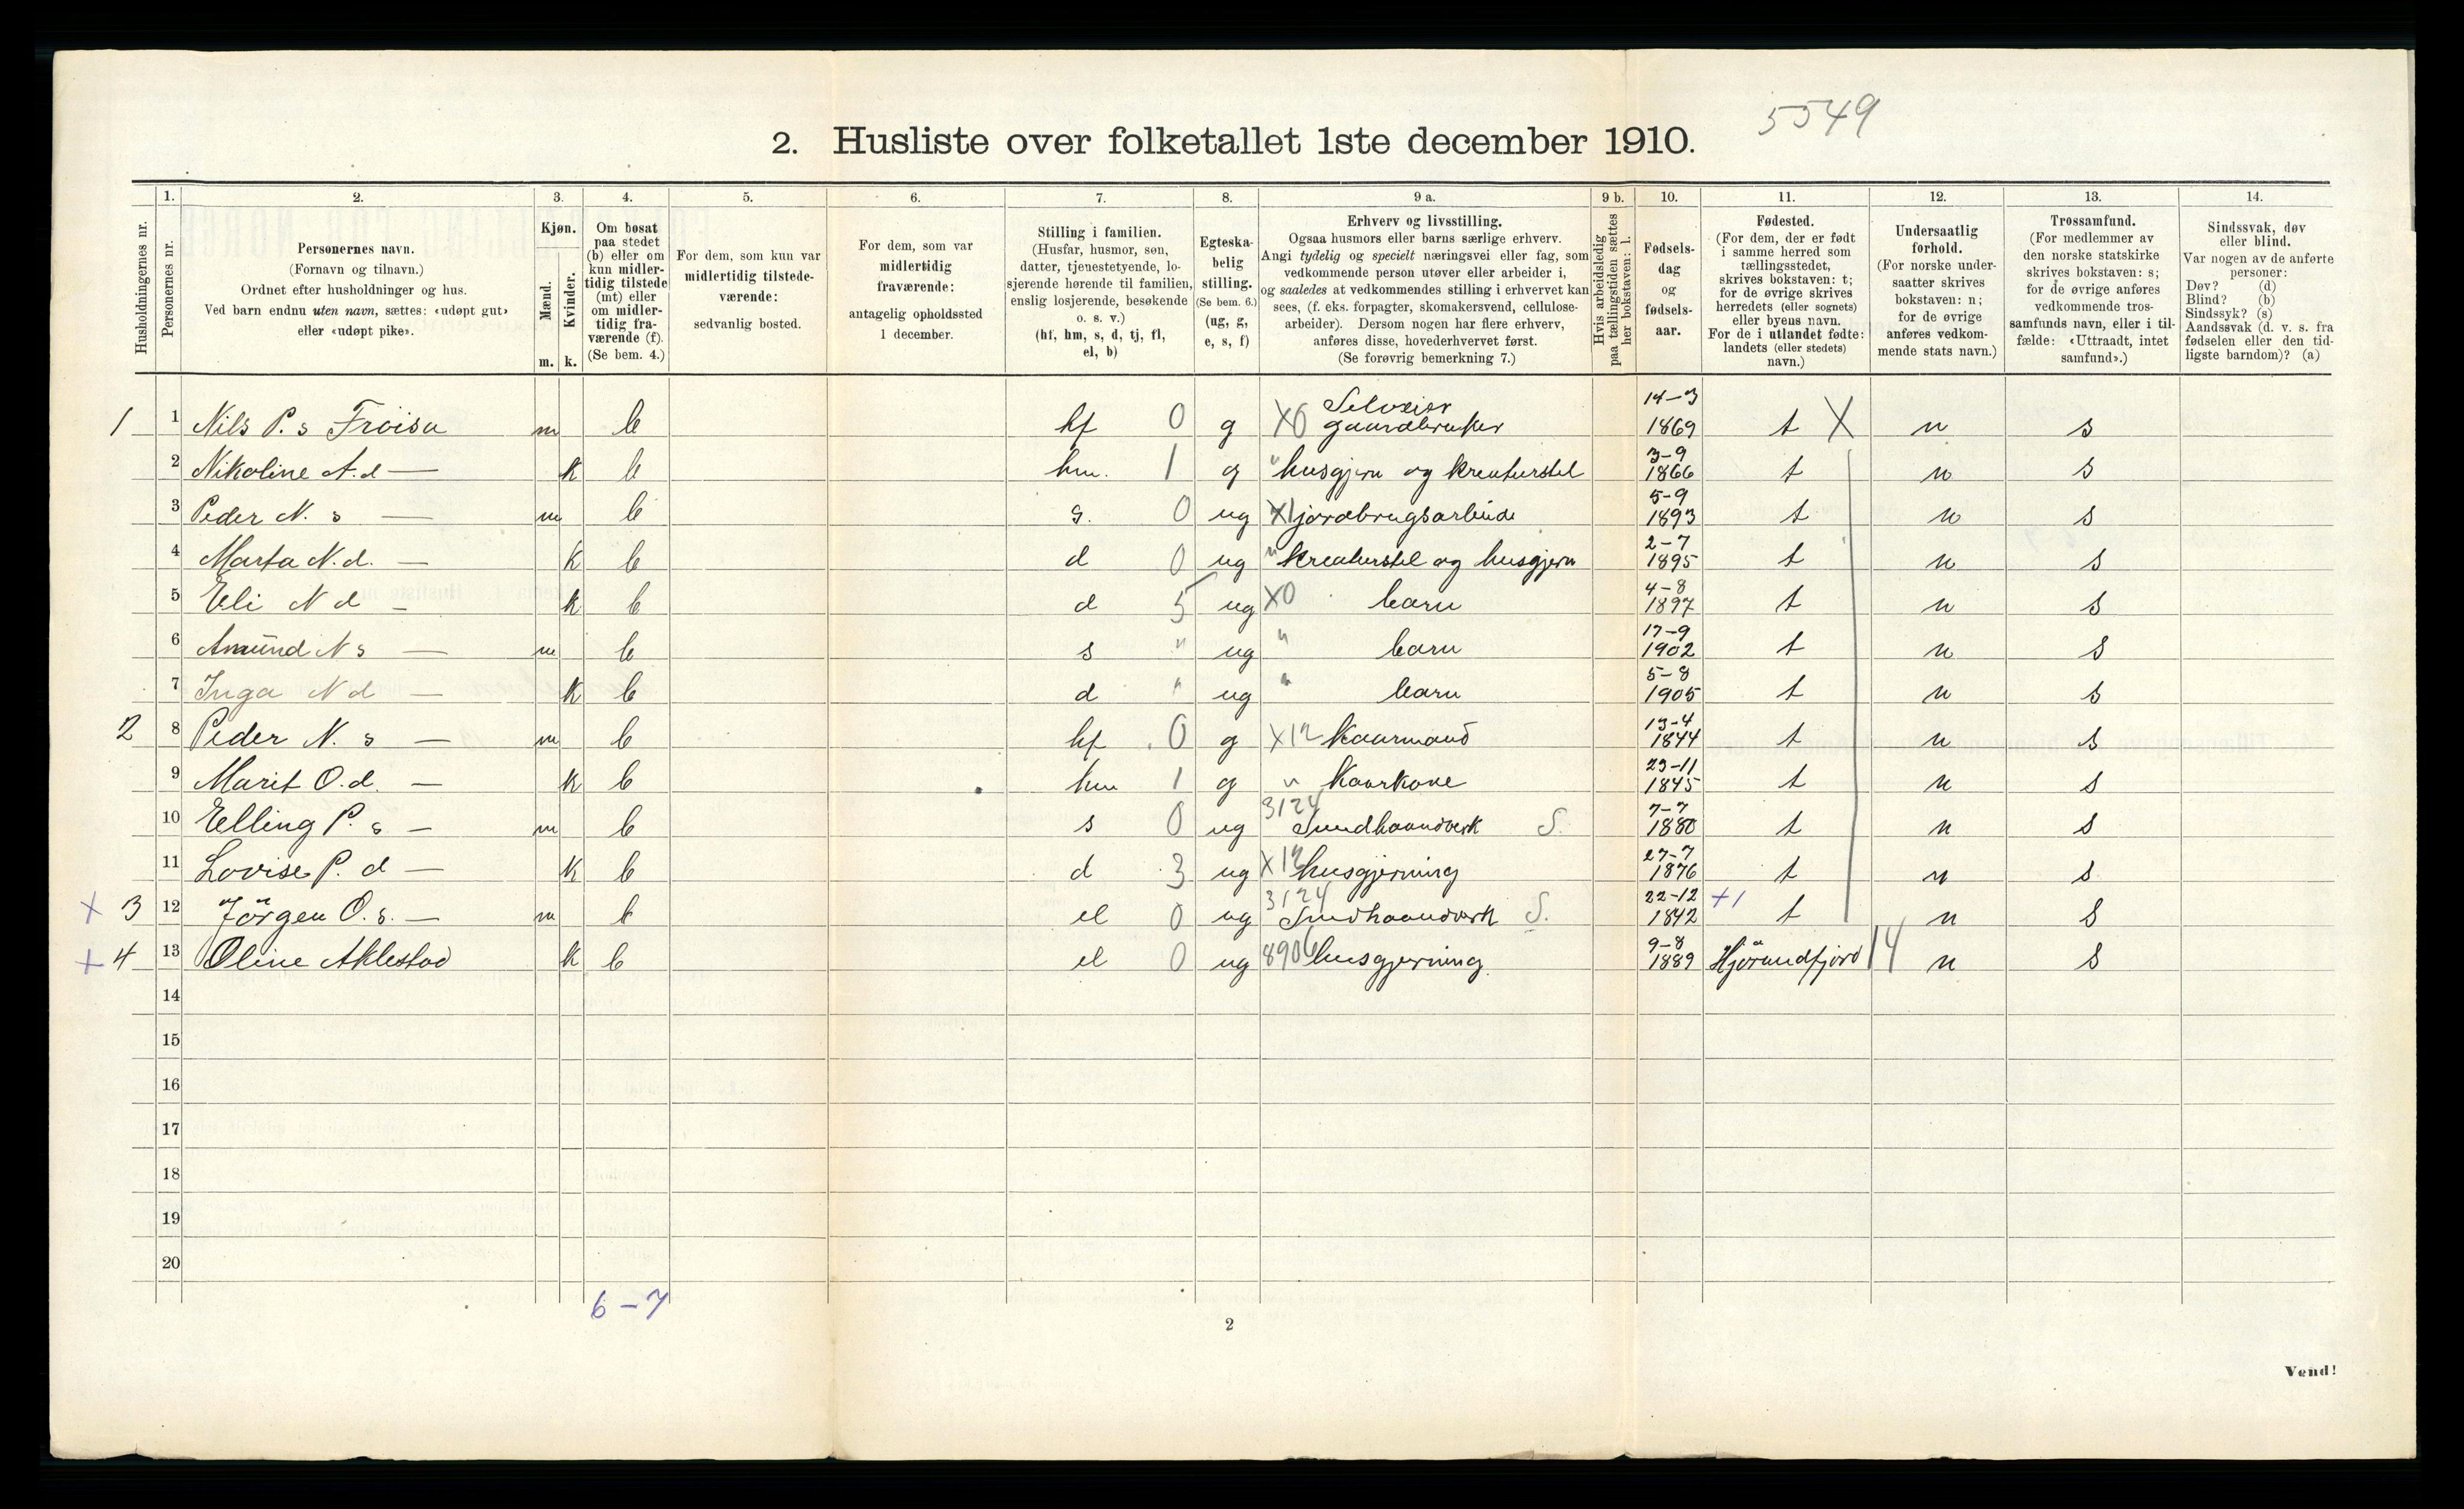 5549
2. Husliste over folketallet 1ste december 1910.
Husholdningernes nr.
1. Personernes nr.
2. Personernes navn.
(Fornavn og tilnavn.)
Ordnet efter husholdninger og hus.
Ved barn endnu uten navn, sættes: «udøpt gut»
eller «udøpt pike».
3. Kjøn.
Mænd. m.
Kvinder. k.
4. Om bosat
paa stedet
(b) eller om
kun midler-
tidig tilstede
(mt) eller
om midler-
tidig fra-
værende (f).
(Se bem. 4.)
5. For dem, som kun var
midlertidig tilstede-
værende:
sedvanlig bosted.
6. For dem, som var
midlertidig
fraværende:
antagelig opholdssted
1 december.
7. Stilling i familien.
(Husfar, husmor, søn,
datter, tjenestetyende, lo-
sjerende hørende til familien,
enslig losjerende, besøkende
o. s. v.)
(hf, hm, s, d, tj, fl,
el, b)
8. Egteska-
belig
stilling.
(Se bem. 6.)
(ug, g,
e, s, f)
9 a. Erhverv og livsstilling.
Ogsaa husmors eller barns særlige erhverv.
Angi tydelig og specielt næringsvei eller fag, som
vedkommende person utøver eller arbeider i,
og saaledes at vedkommendes stilling i erhvervet kan
sees, (f. eks. forpagter, skomakersvend, cellulose-
arbeider). Dersom nogen har flere erhverv,
anføres disse, hovederhvervet først.
(Se forøvrig bemerkning 7.)
9 b. Hvis arbeidsledig
paa tællingstiden sættes
her bokstaven: l.
10. Fødsels-
dag
og
fødsels-
aar.
11. Fødested.
(For dem, der er født
i samme herred som
tællingsstedet,
skrives bokstaven: t;
for de øvrige skrives
herredets (eller sognets)
eller byens navn.
For de i utlandet fødte:
landets (eller stedets)
navn.)
12. Undersaatlig
forhold.
(For norske under-
saatter skrives
bokstaven: n;
for de øvrige
anføres vedkom-
mende stats navn.)
13. Trossamfund.
(For medlemmer av
den norske statskirke
skrives bokstaven: s;
for de øvrige anføres
vedkommende tros-
samfunds navn, eller i til-
fælde: «Uttraadt, intet
samfund».)
14. Sindssvak, døv
eller blind.
Var nogen av de anførte
personer:
Døv? (d)
Blind? (b)
Sindssyk? (s)
Aandssvak (d. v. s. fra
fødselen eller den tid-
ligste barndom)? (a)
1 1 Nils P. s Fröisa m b hf 0 g X0 Selveier gaardbruker 14-3 1869 t X n s
2 Nikoline A. d — k b hm. 1 g " husgjern og kreaturstel 3-9 1866 t n s
3 Peder N. s — m b s. 0 ug X1 jordbrugsarbeide 5-9 1893 t n s
4 Marta N. d. — k b d 0 ug " kreaturstel og husgjern 2-7 1895 t n s
5 Eli N d — k b d 5 ug X0 barn 4-8 1897 t n s
6 Amund N s — m b s " ug " barn 17-9 1902 t n s
7 Inga N d — k b d " ug " barn 5-8 1905 t n s
2 8 Peder N. s — m b hf 0 g X12 Kaarmand 13-4 1844 t n s
9 Marit O. d. — k b hm 1 g " Kaarkone 23-11 1845 t n s
10 Elling P. s — m b s 0 ug 3124 Smedhaandverk S. 7-7 1880 t n s
11 Lovise P. d — k b d 3 ug X12 husgjerning 27-7 1876 t n s
X 3 12 Jörgen O. s. — m b el 0 ug 3124 Smedhaandverk S. 22-12 1842 +1 t n s
+ 4 13 Oline Aklestad k b el 0 ug 8906 husgjerning. 9-8 1889 Hjörundfjord 14 n s
14
15
16
17
18
19
20
6-7
2
Vend!